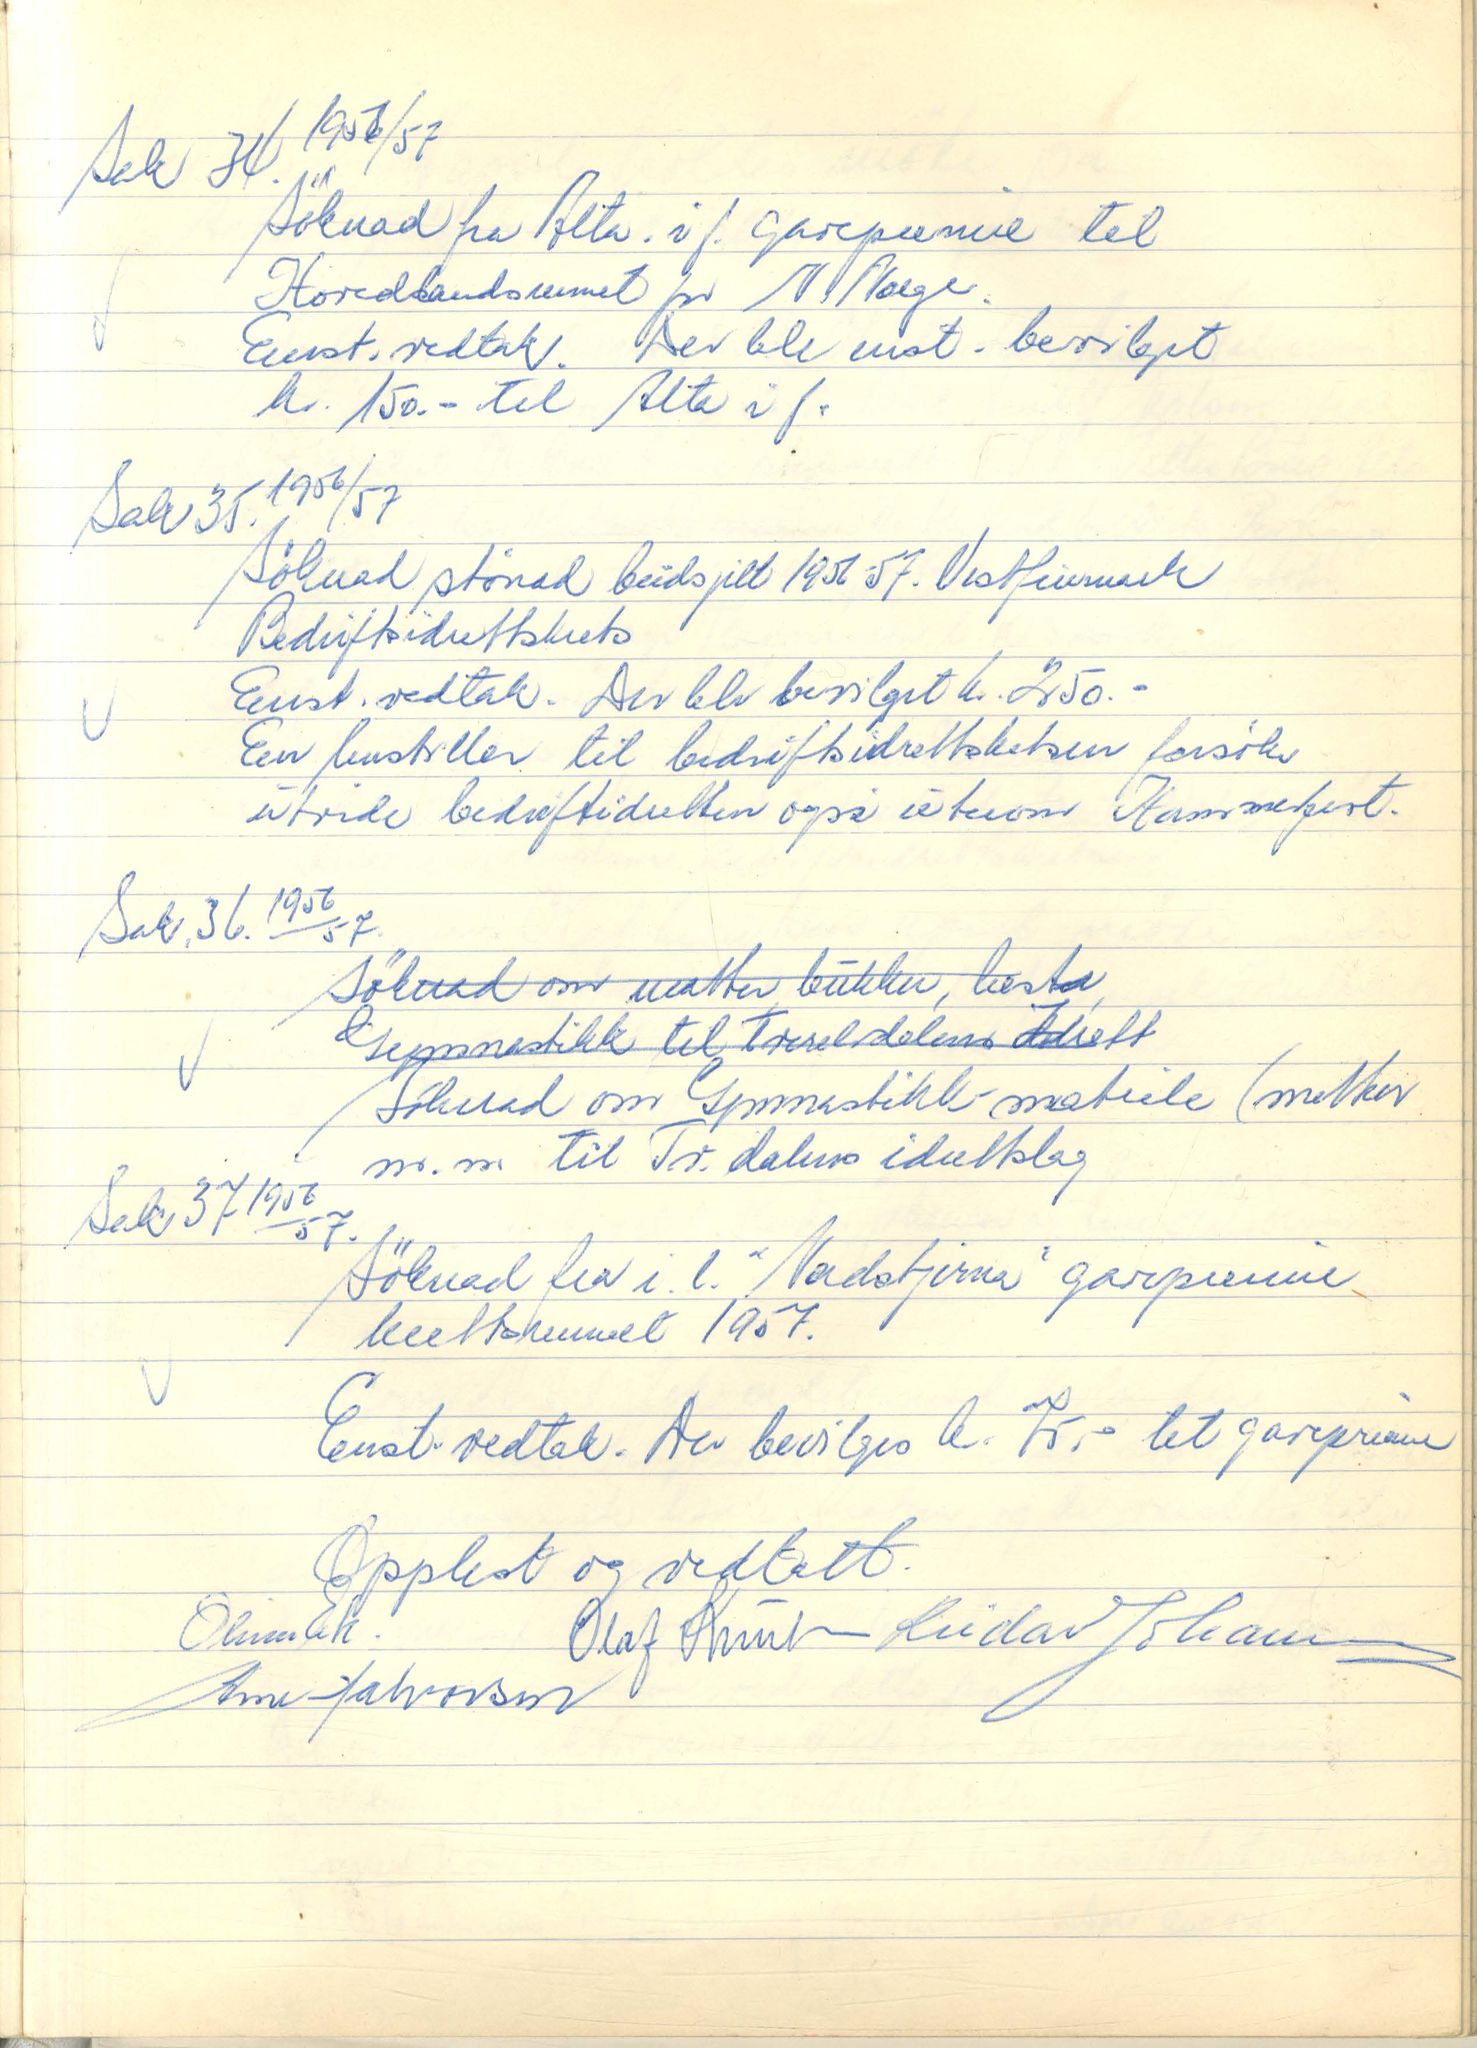 Sak 34. 1956/57
Söknad fra Alta. i f. garepremie til
Hovedlandsrennet for N. Norge.
Enst. vedtak. Det ble enst. bevilget
kr. 150.- til Alta i f.
Sak 35. 1956/57
Söknad stönad budsjett 1956-57. Vestfinnmark
Bedriftsidrettskrets
Enst. vedtak. Det ble bevilget kr. 250.-
En henstiller til bedriftsidrettskretsen forsöke
utvide bedriftidretten også utenom Hammerfest.
Sak. 36. 1956/57.
Söknad om matter, bukker, hesta,
Gymnastikk til Tverrelvdalens Idrett
Söknad om Gymnastikk-matriele (matter
m.m til Tv. dalens idrettslag
Sak 37 1956/57.
Söknad fra i. l. "Nordstjerna" garepremie
kretsrennet 1957.
Enst. vedtak. Det bevilges kr. 75.- til garepremie
Opplest og vedtatt.
Olaf Reidar Johansen
Arne Halvorsen